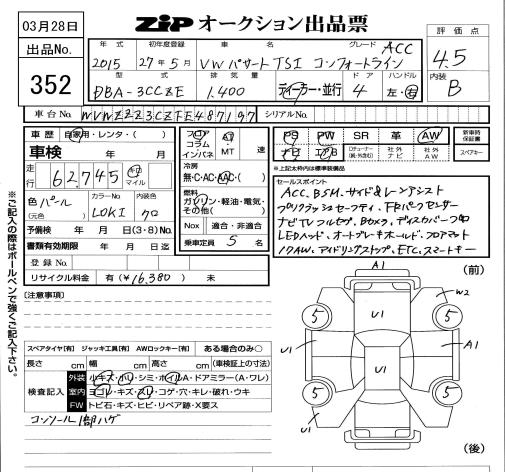 03月28日
ZiP オークション出品票
出品No.
352
年式 初年度登録 車名 グレード
2015 27年5月 VW パサート TSI コンフォートライン ACC
型式 排気量 ドア ハンドル
DBA-3CCZE 1.400 ディーラー・並行 4 左・右
評価点
4.5
内装
B
車台No. シリアルNo.
車歴 自家用・レンタ・( )
車検 年 月
走行 62,745 キロ マイル
色 パール (元色) カラーNo LOKI 内装色 クロ
予備検 年 月 日 (3・8)No.
書類有効期限 年 月 日迄
登録No.
リサイクル料金 有 (¥16,380) 未
フロア コラム インパネ AT MT 速
冷房
無・C・AC・AAC・( )
燃料
ガソリン・軽油・電気・その他( )
Nox 適合・非適合
乗車定員 5 名
PS PW SR 革 AW
ナビ エアB ロTチューナー (黒・外含む) 社外ナビ 社外AW
新車時保証書
スペアキー
※上記太枠内は標準装備品
セールスポイント
ACC、BSM、サイド&レーンアシスト
プリクラッシュセーフティ、FRパークセンサー
ナビTVフルセグ、Bカメラ、ディスカバープロ
LEDヘッド、オートブレーキホールド、フロアマット
17AW、アイドリングストップ、ETC、スマートキー
※ご記入の際はボールペンで強くご記入下さい。
[注意事項]
スペアタイヤ[有] ジャッキ工具[有] AWロックキー[有] ある場合のみ〇
長さ cm 幅 cm 高さ cm (車検証上の寸法)
検査記入
外装 小キズ・凹・シミ・ホイルA・ドアミラー(A・ワレ)
室内 ヨゴレ・キズ・スレ・コゲ・穴・キレ・破れ・ウキ
FW トビ石・キズ・ヒビ・リペア跡・X要ス
コンソール1部ハゲ
A1 (前)
W2
5 U1 5
U1 U1 A1
U1
5 5
U1 (後)